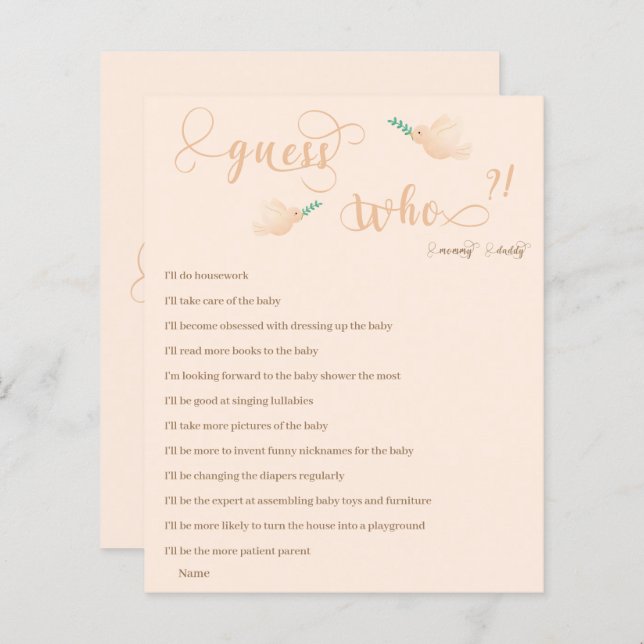 guess
who?!
mommy daddy
I'll do housework
I'll take care of the baby
I'll become obsessed with dressing up the baby
I'll read more books to the baby
I'm looking forward to the baby shower the most
I'll be good at singing lullabies
I'll take more pictures of the baby
I'll be more to invent funny nicknames for the baby
I'll be changing the diapers regularly
I'll be the expert at assembling baby toys and furniture
I'll be more likely to turn the house into a playground
I'll be the more patient parent
Name